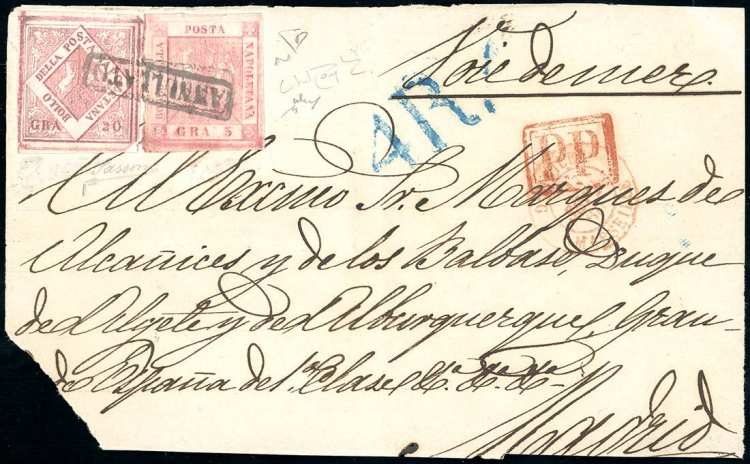 BOLLO DELLA POSTA
GRA 20
POSTA NAPOLETANA
GRA 5
ANNULLATO
4R.
Voie de mer.
PP
Al Excmo Sr. Marques de
Alcañices y de los Balbases, Duque
de Algete y de Alburquerque, Gran-
de España de 1ª Clase &ª &ª &ª
Madrid